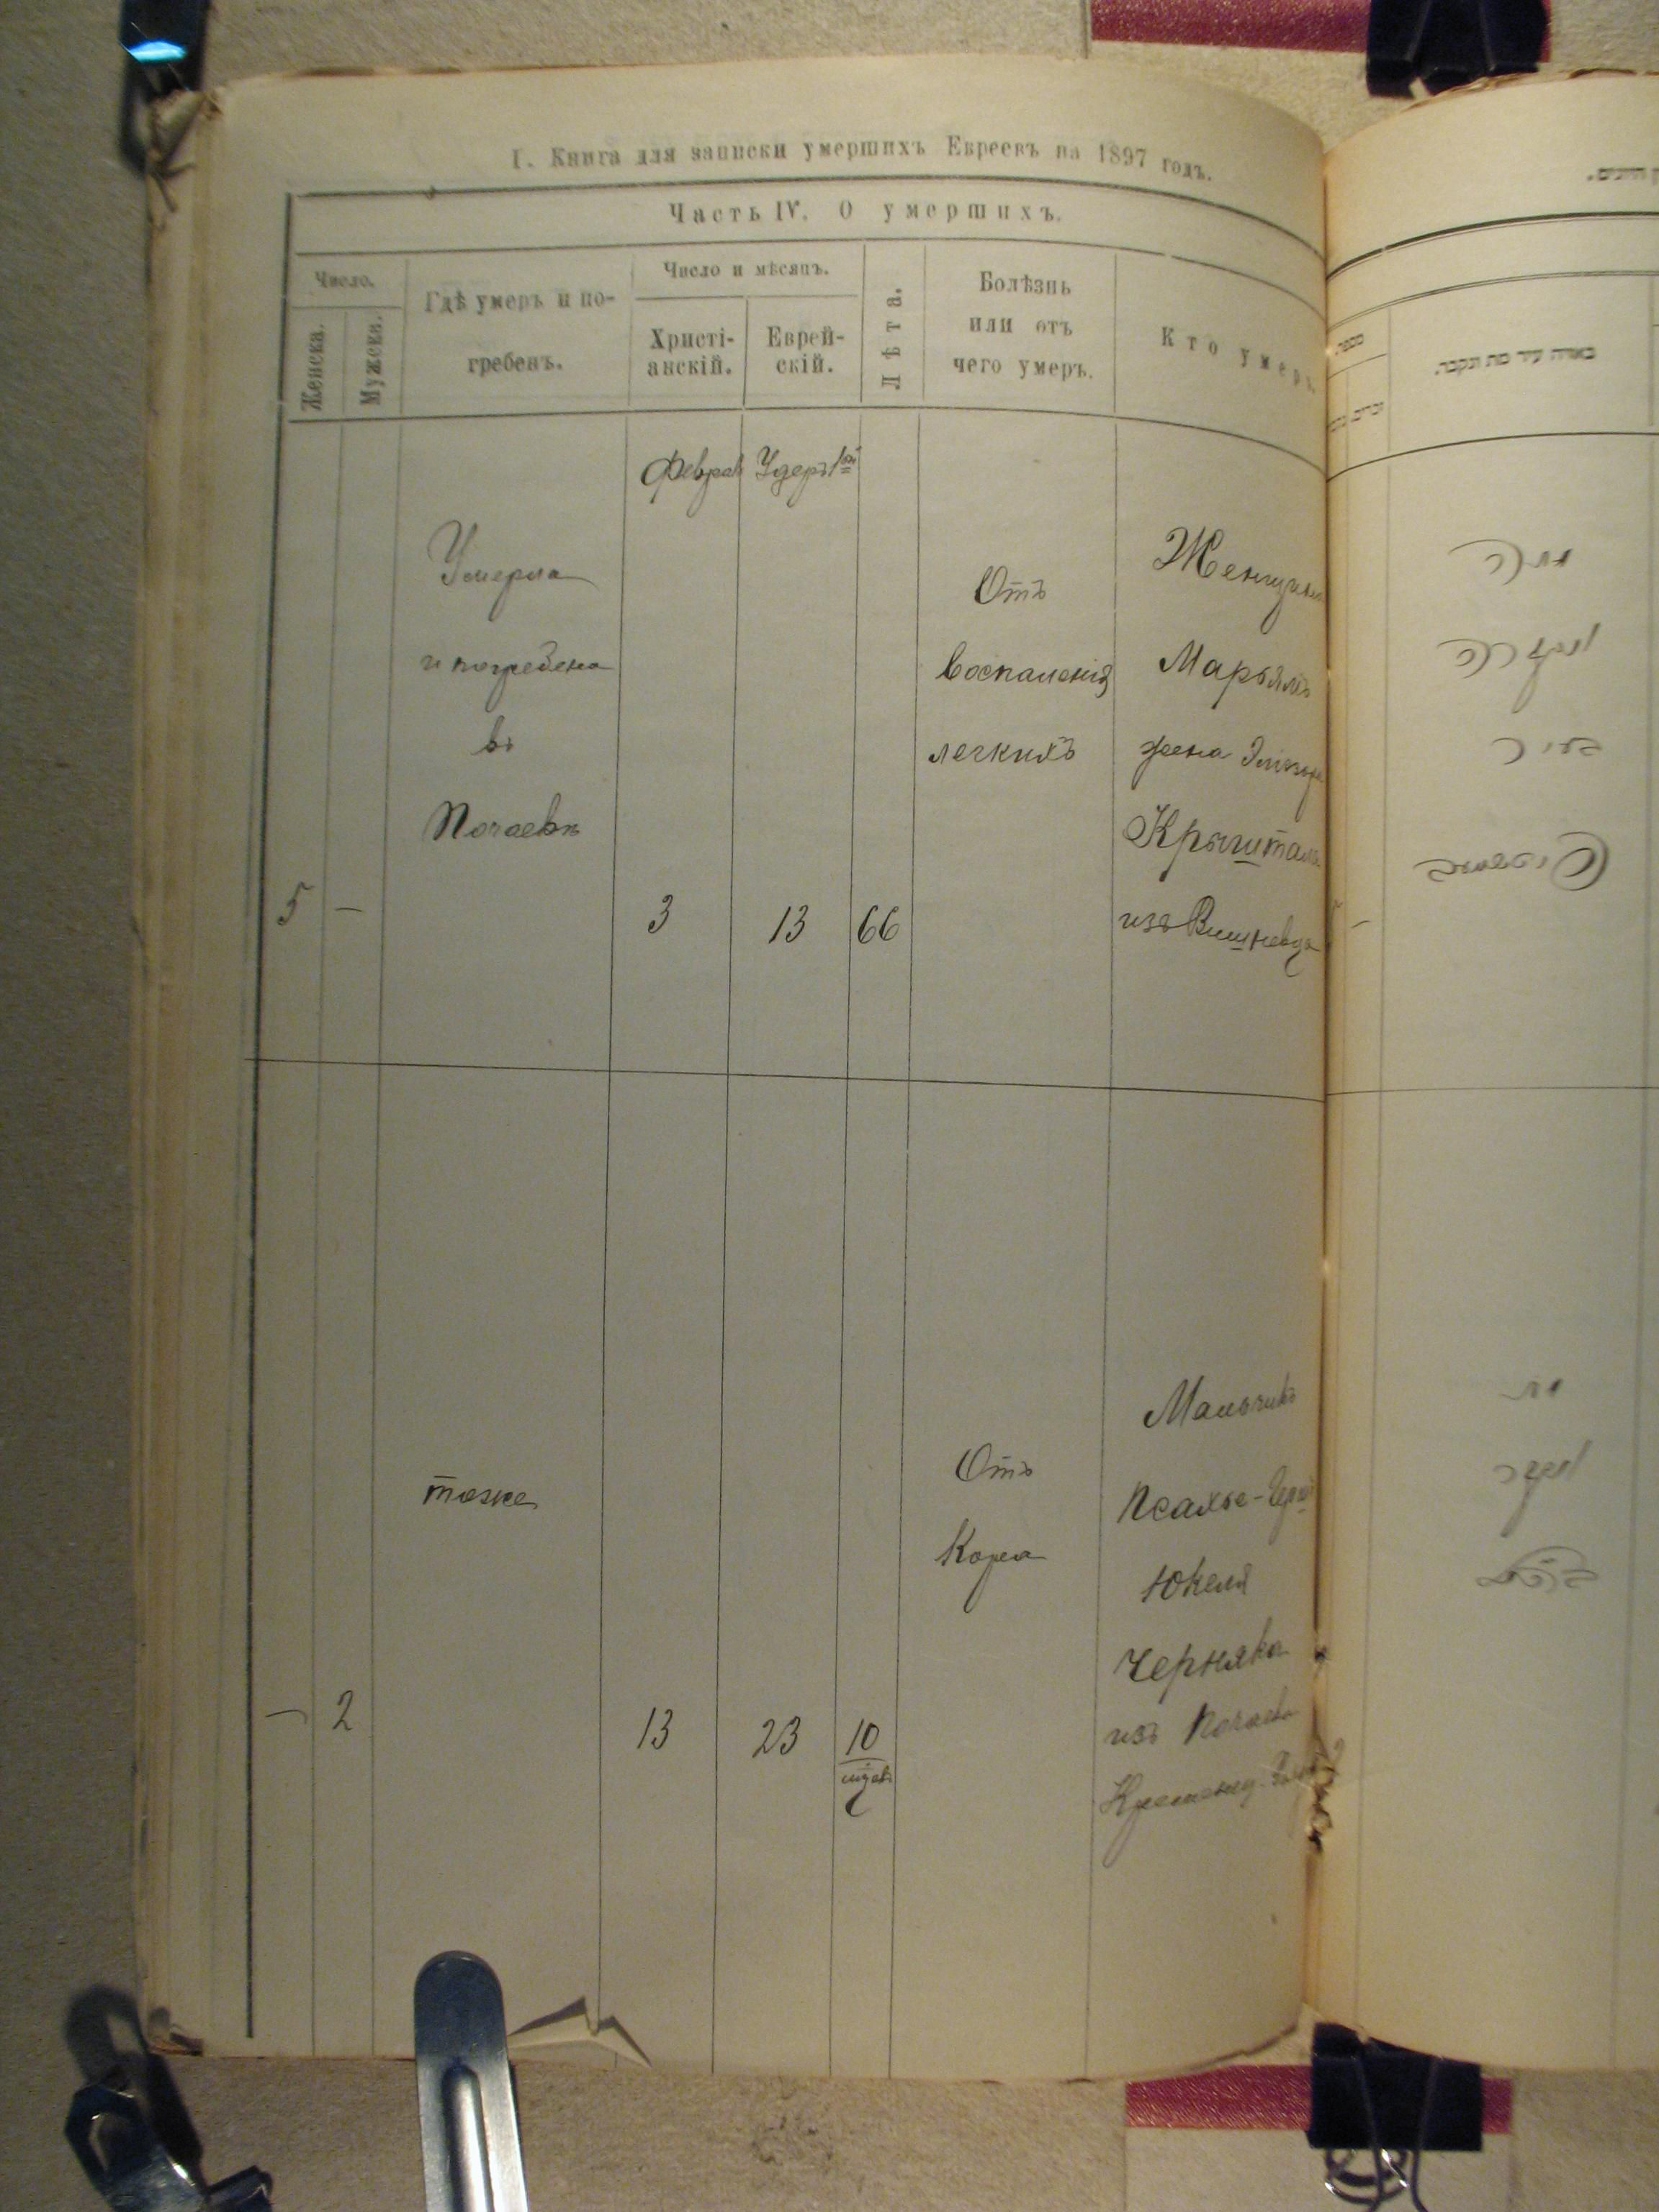 I. Книга для записки умершихъ Евреевъ на 1897 годъ.
Часть IV. О умершихъ.
Число.
Женска.
Мужска.
Гдѣ умеръ и по-
гребенъ.
Число и мѣсяцъ.
Христі-
анскій.
Еврей-
скій.
Лѣта.
Болѣзнь
или отъ
чего умеръ.
Кто умеръ.
Феврал
Удеръ 1й
5
—
Умерла
и погребена
въ
Почаевѣ
3
13
66
Отъ
воспаленія
легкихъ
Женщина
Марьямъ
жена
Крыштала
изъ Вишневца
—
2
тоже
13
23
10
мѣсяц
Отъ
Кори
Мальчикъ
Псахье-Герш
Юкеля
Черняка
изъ Почаева
Кременец.
באיזה עיר מת ונקבר.
מספר